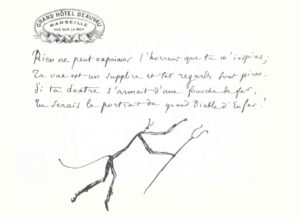 GRAND HÔTEL BEAUVAU
MARSEILLE
VUE SUR LA MER
Rien ne peut exprimer l'horreur que tu m'inspires;
Ta vue est un supplice et tes regards sont pires.
Si ta dextre s'armait d'une fourche de fer,
Tu serais le portrait du grand Diable d'Enfer!